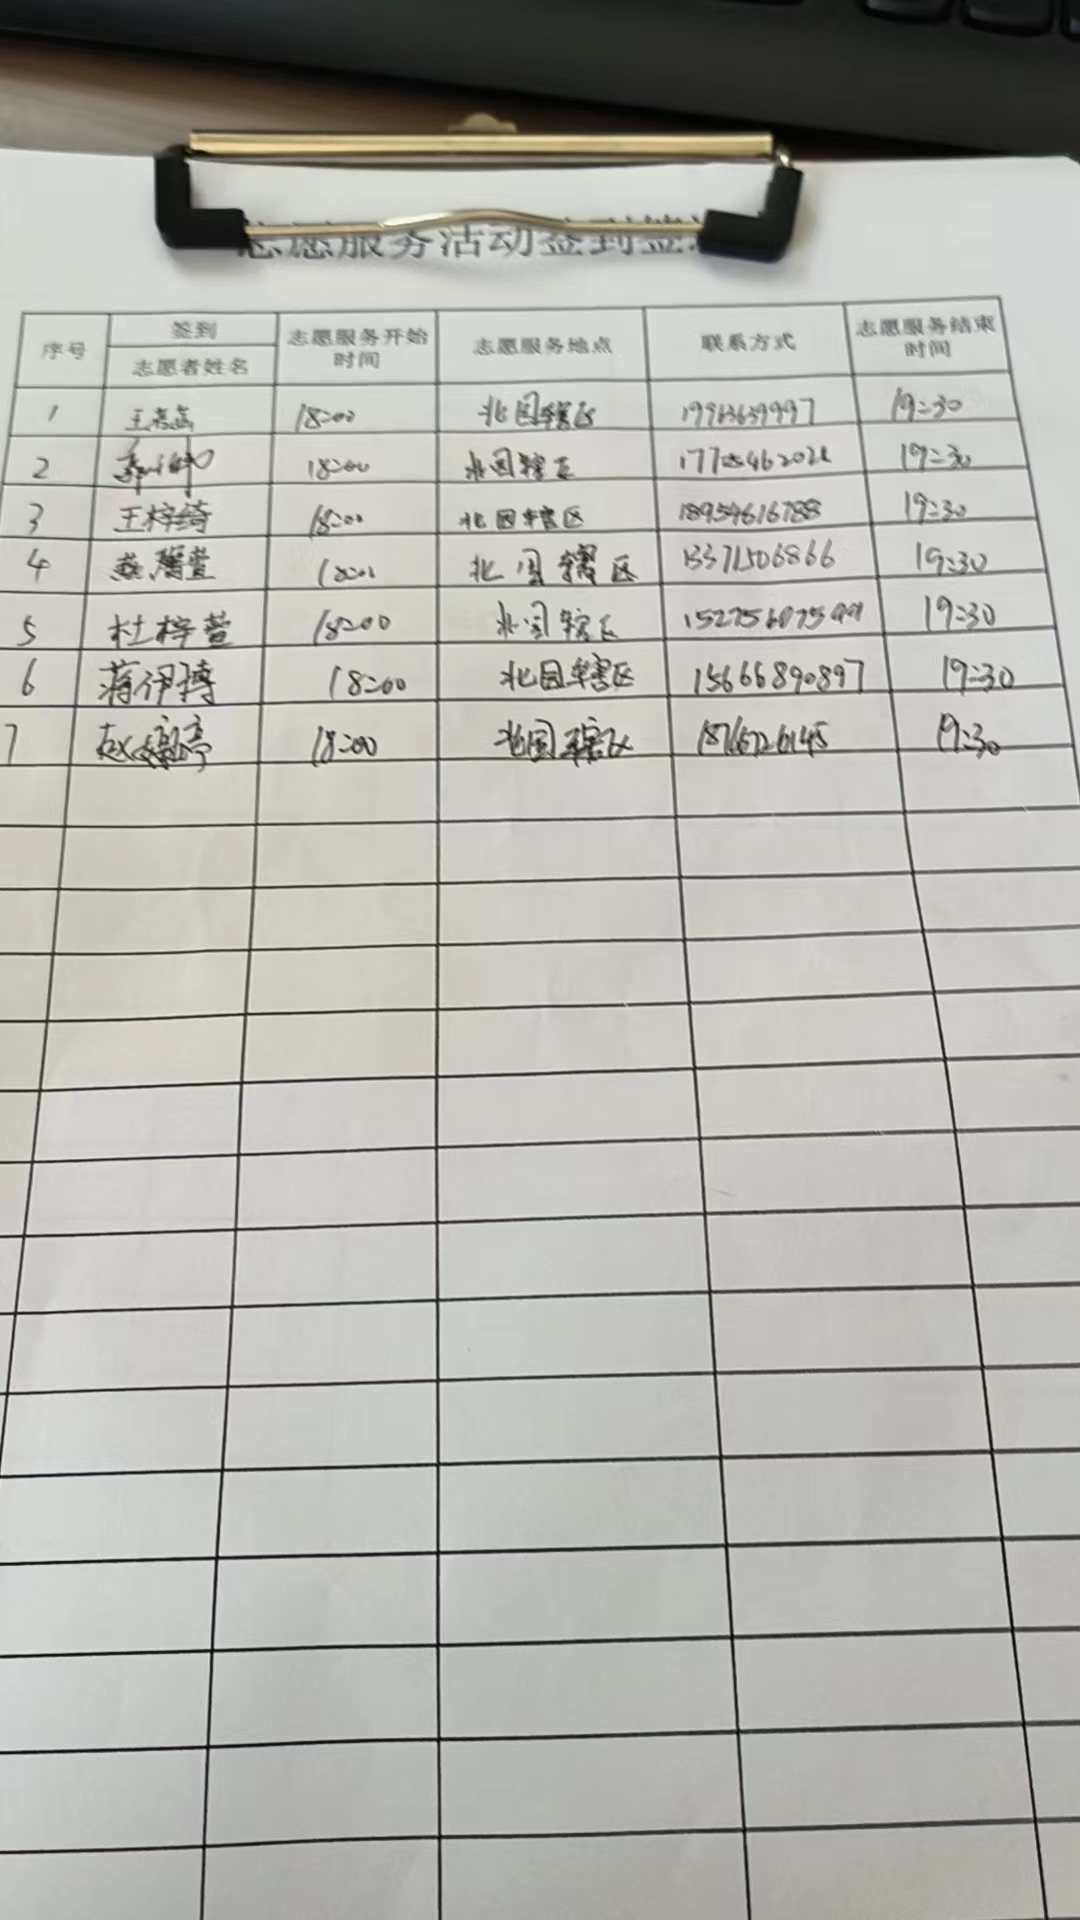 志愿服务活动签到签
序号 签到 志愿者姓名 志愿服务开始时间 志愿服务地点 联系方式 志愿服务结束时间
1 18:00 北园辖区 19913639997 19:30
2 18:00 北园辖区 19:30
3 王梓绮 18:00 北园辖区 18954616788 19:30
4 18:00 北园辖区 13371506866 19:30
5 杜梓萱 18:00 北园辖区 19:30
6 蒋伊博 18:00 北园辖区 15666890897 19:30
7 18:00 北园辖区 19:30